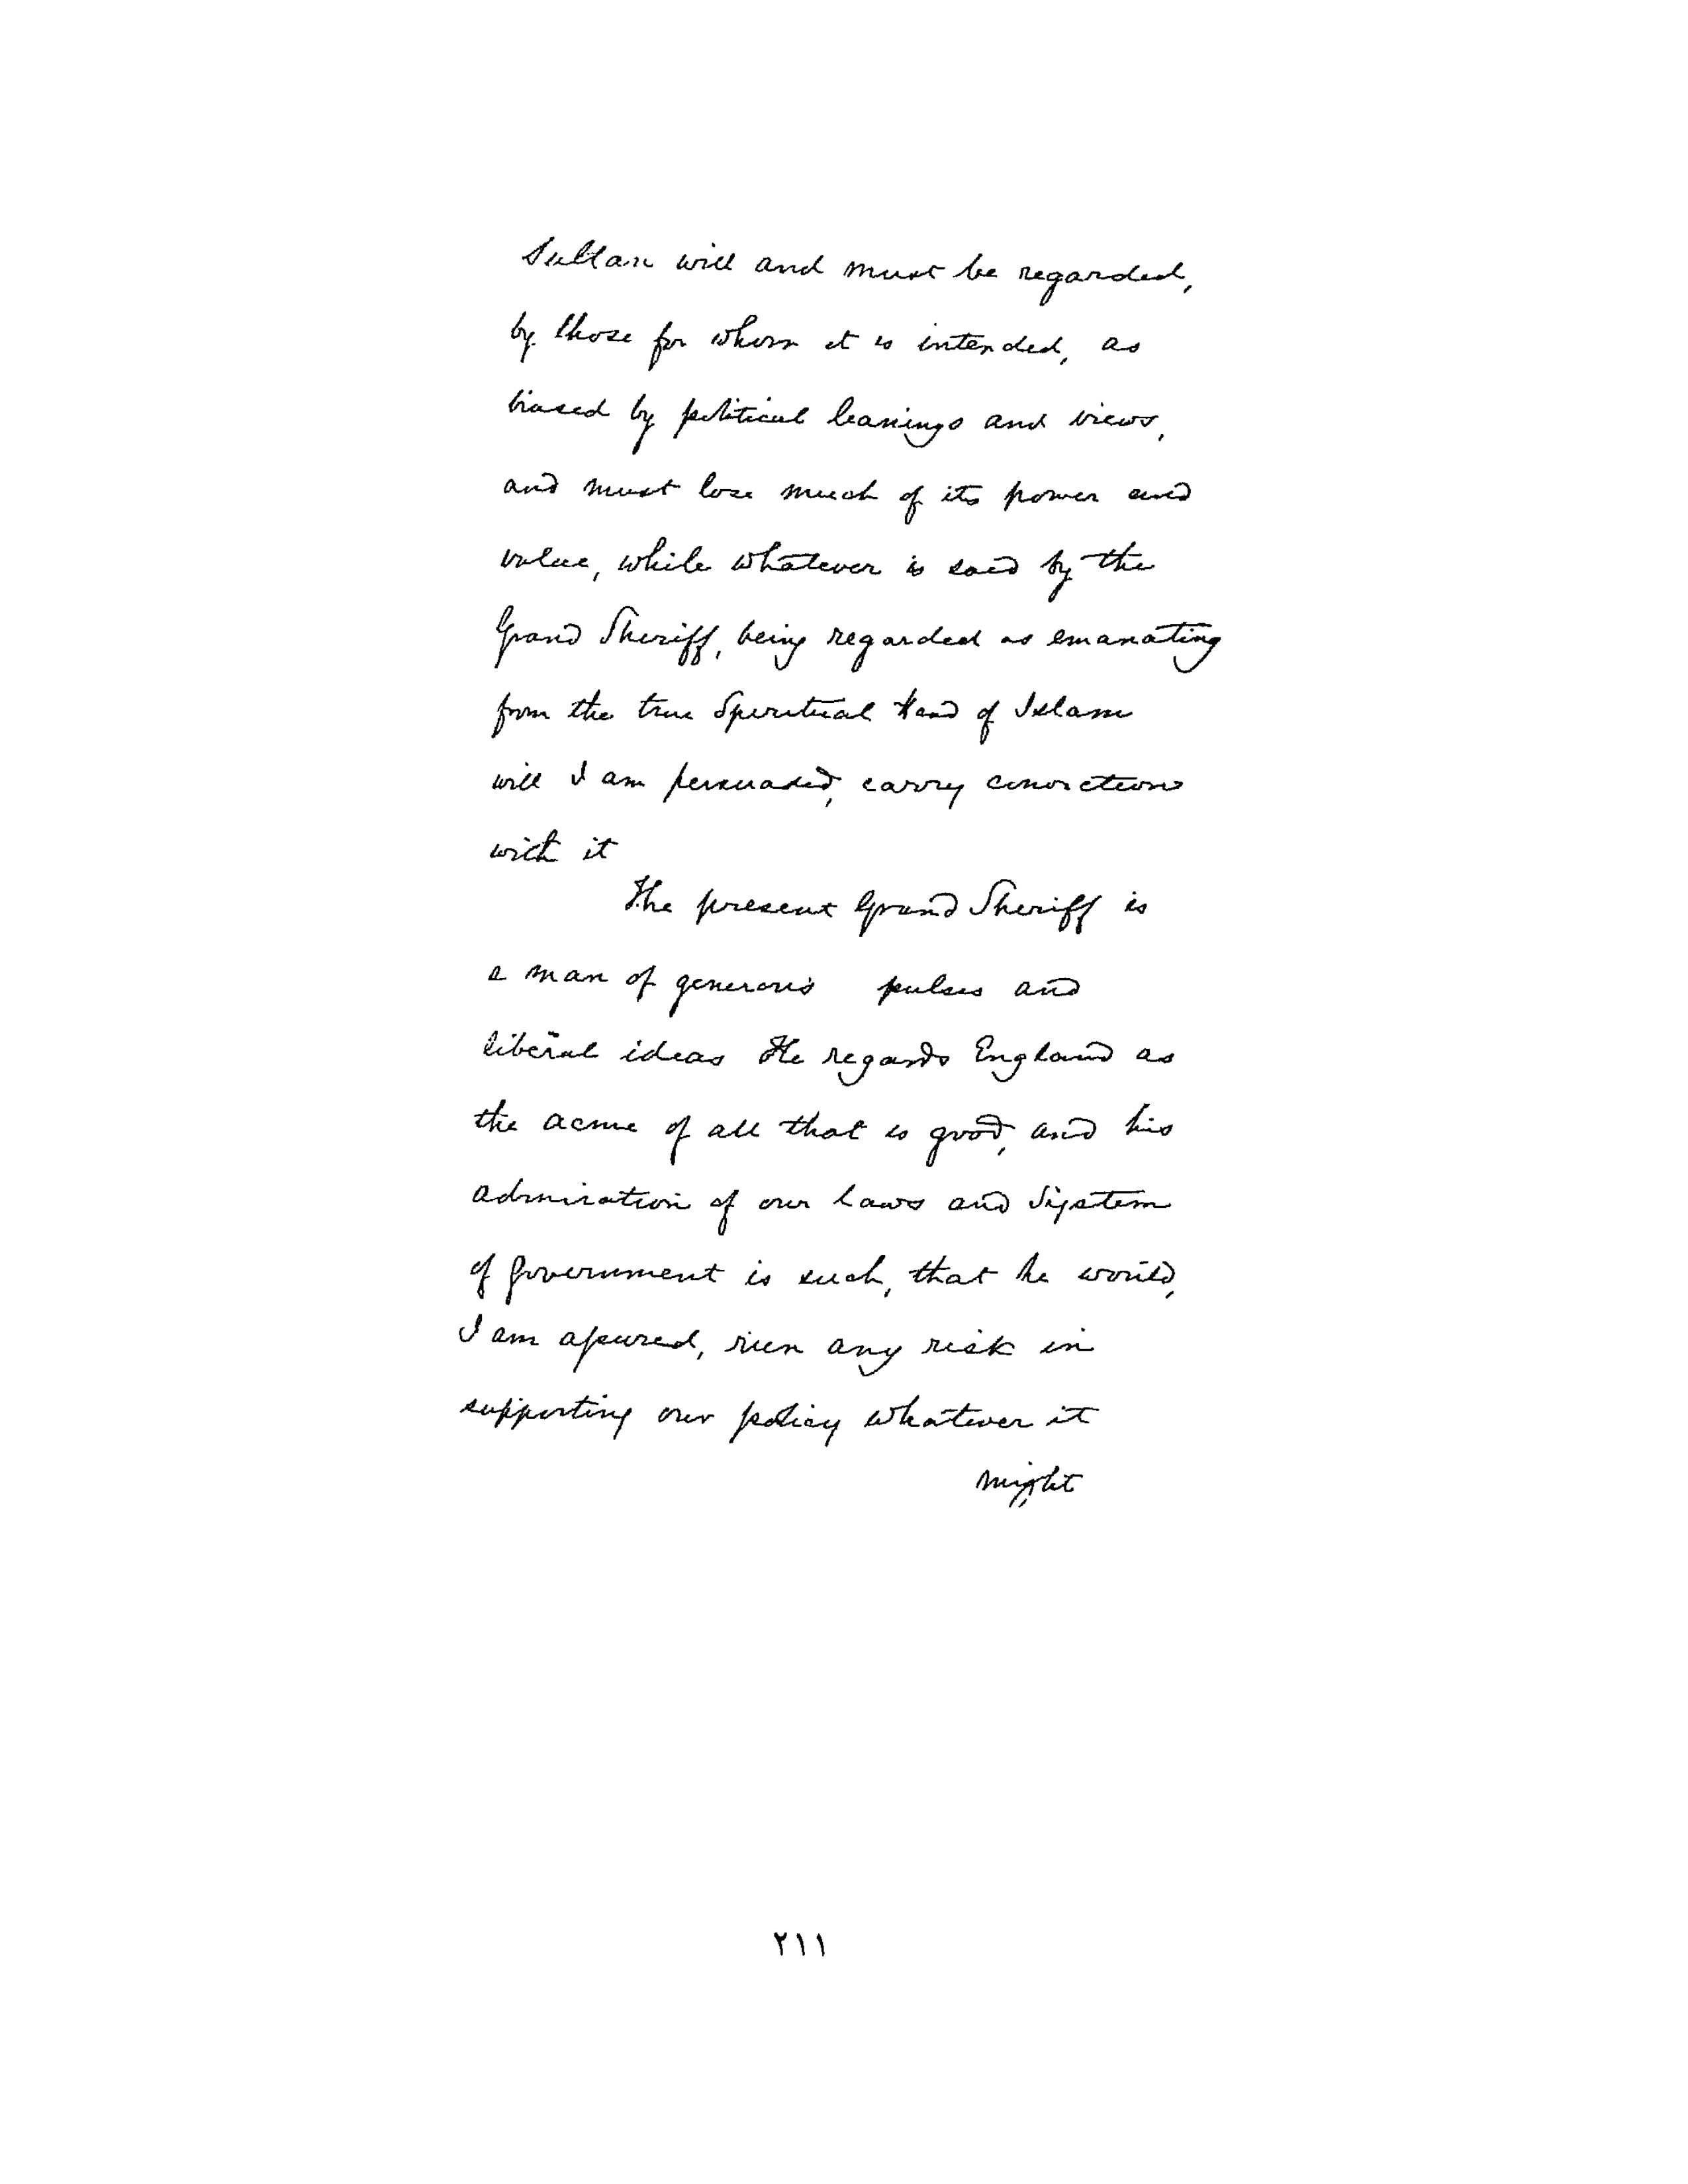 Sultan will and must be regarded,
by those for whom it is intended, as
biased by political leanings and views,
and must lose much of its power and
value, while whatever is said by the
Grand Sheriff, being regarded as emanating
from the true Spiritual Head of Islam
will I am persuaded, carry conviction
with it
The present Grand Sheriff is
a man of generous pulses and
liberal ideas He regards England as
the acme of all that is good, and his
admiration of our laws and System
of Government is such, that he would,
I am assured, run any risk in
supporting our policy whatever it
might
٢١١